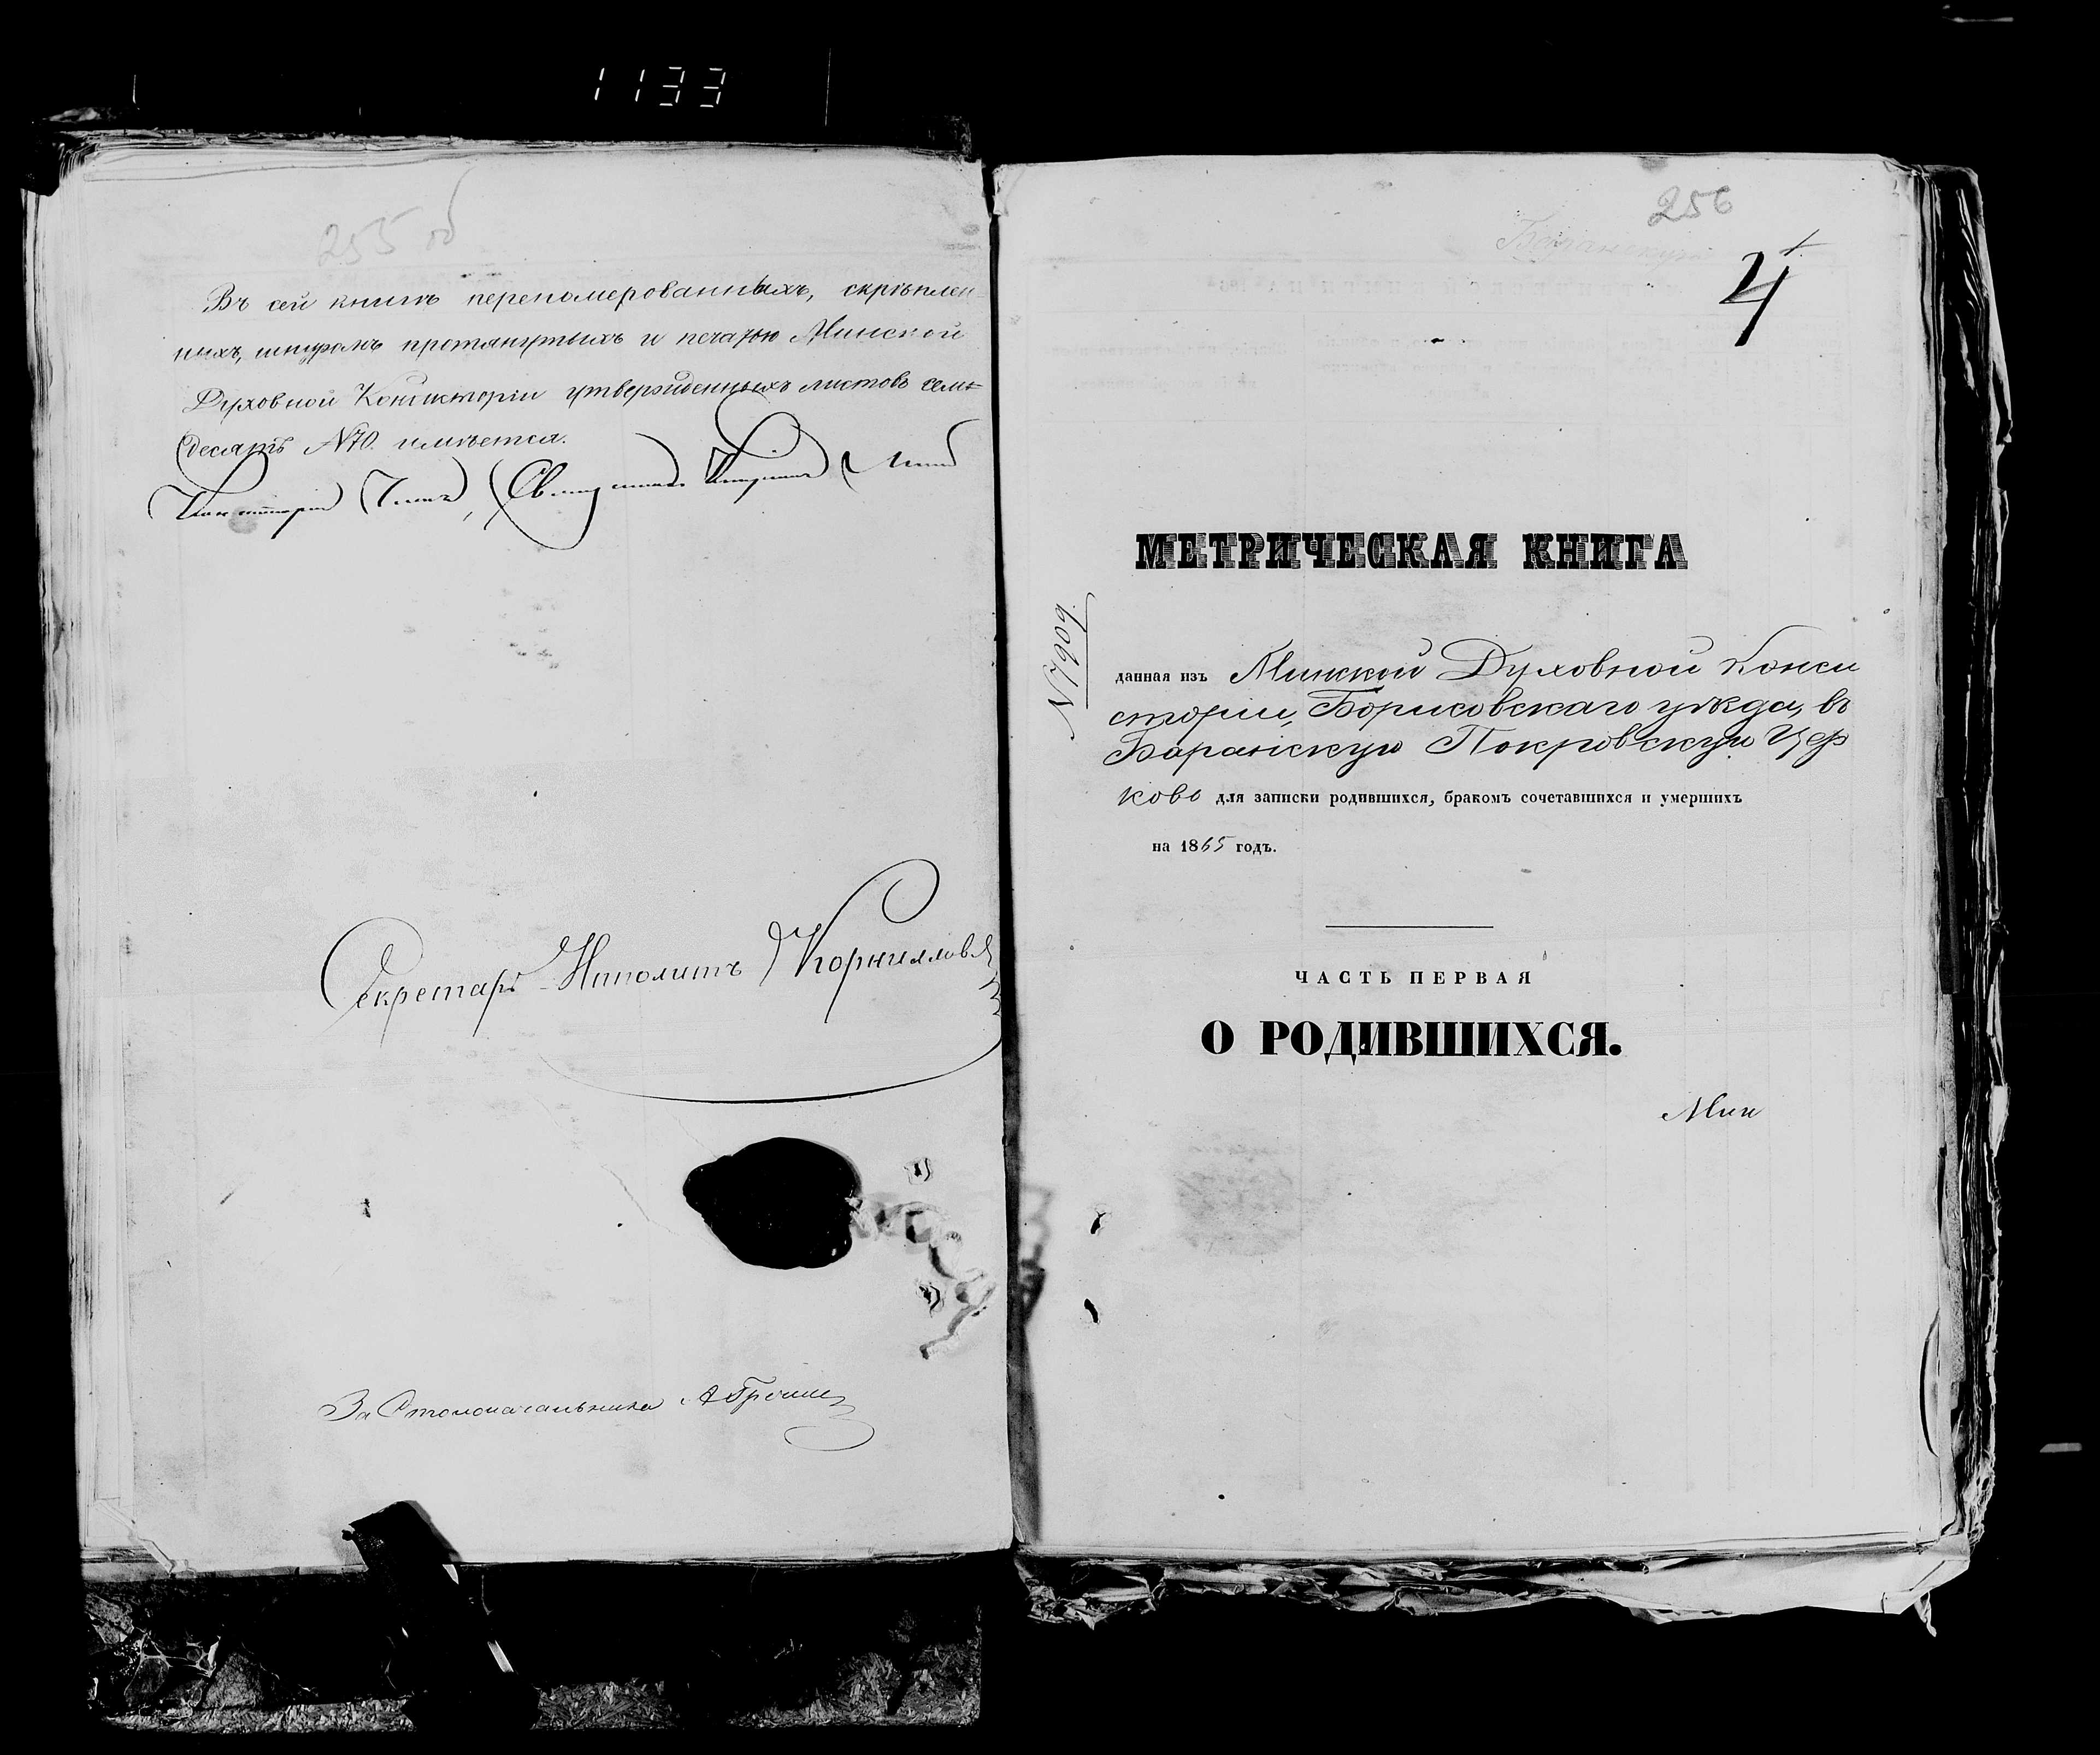 1133
255 об
Въ сей книгѣ перепомерованныхъ, скрѣплен-
ныхъ, шнуромъ протянутыхъ и печатью Минской
Духовной Консисторіи утвержденныхъ листовъ семь-
десятъ №70. имѣется.
Консисторіи Членъ, Священникъ
Секретарь Ипполитъ Корниллов
За Столоначальника
256
4
1
МЕТРИЧЕСКАЯ КНИГА
№ 7909
данная изъ Минской Духовной Конси
сторіи, Борисовскаго уѣзда, въ
Баранскую Покровскую Цер
ковь для записки родившихся, бракомъ сочетавшихся и умершихъ
на 1865 годъ.
ЧАСТЬ ПЕРВАЯ
О РОДИВШИХСЯ.
Мин